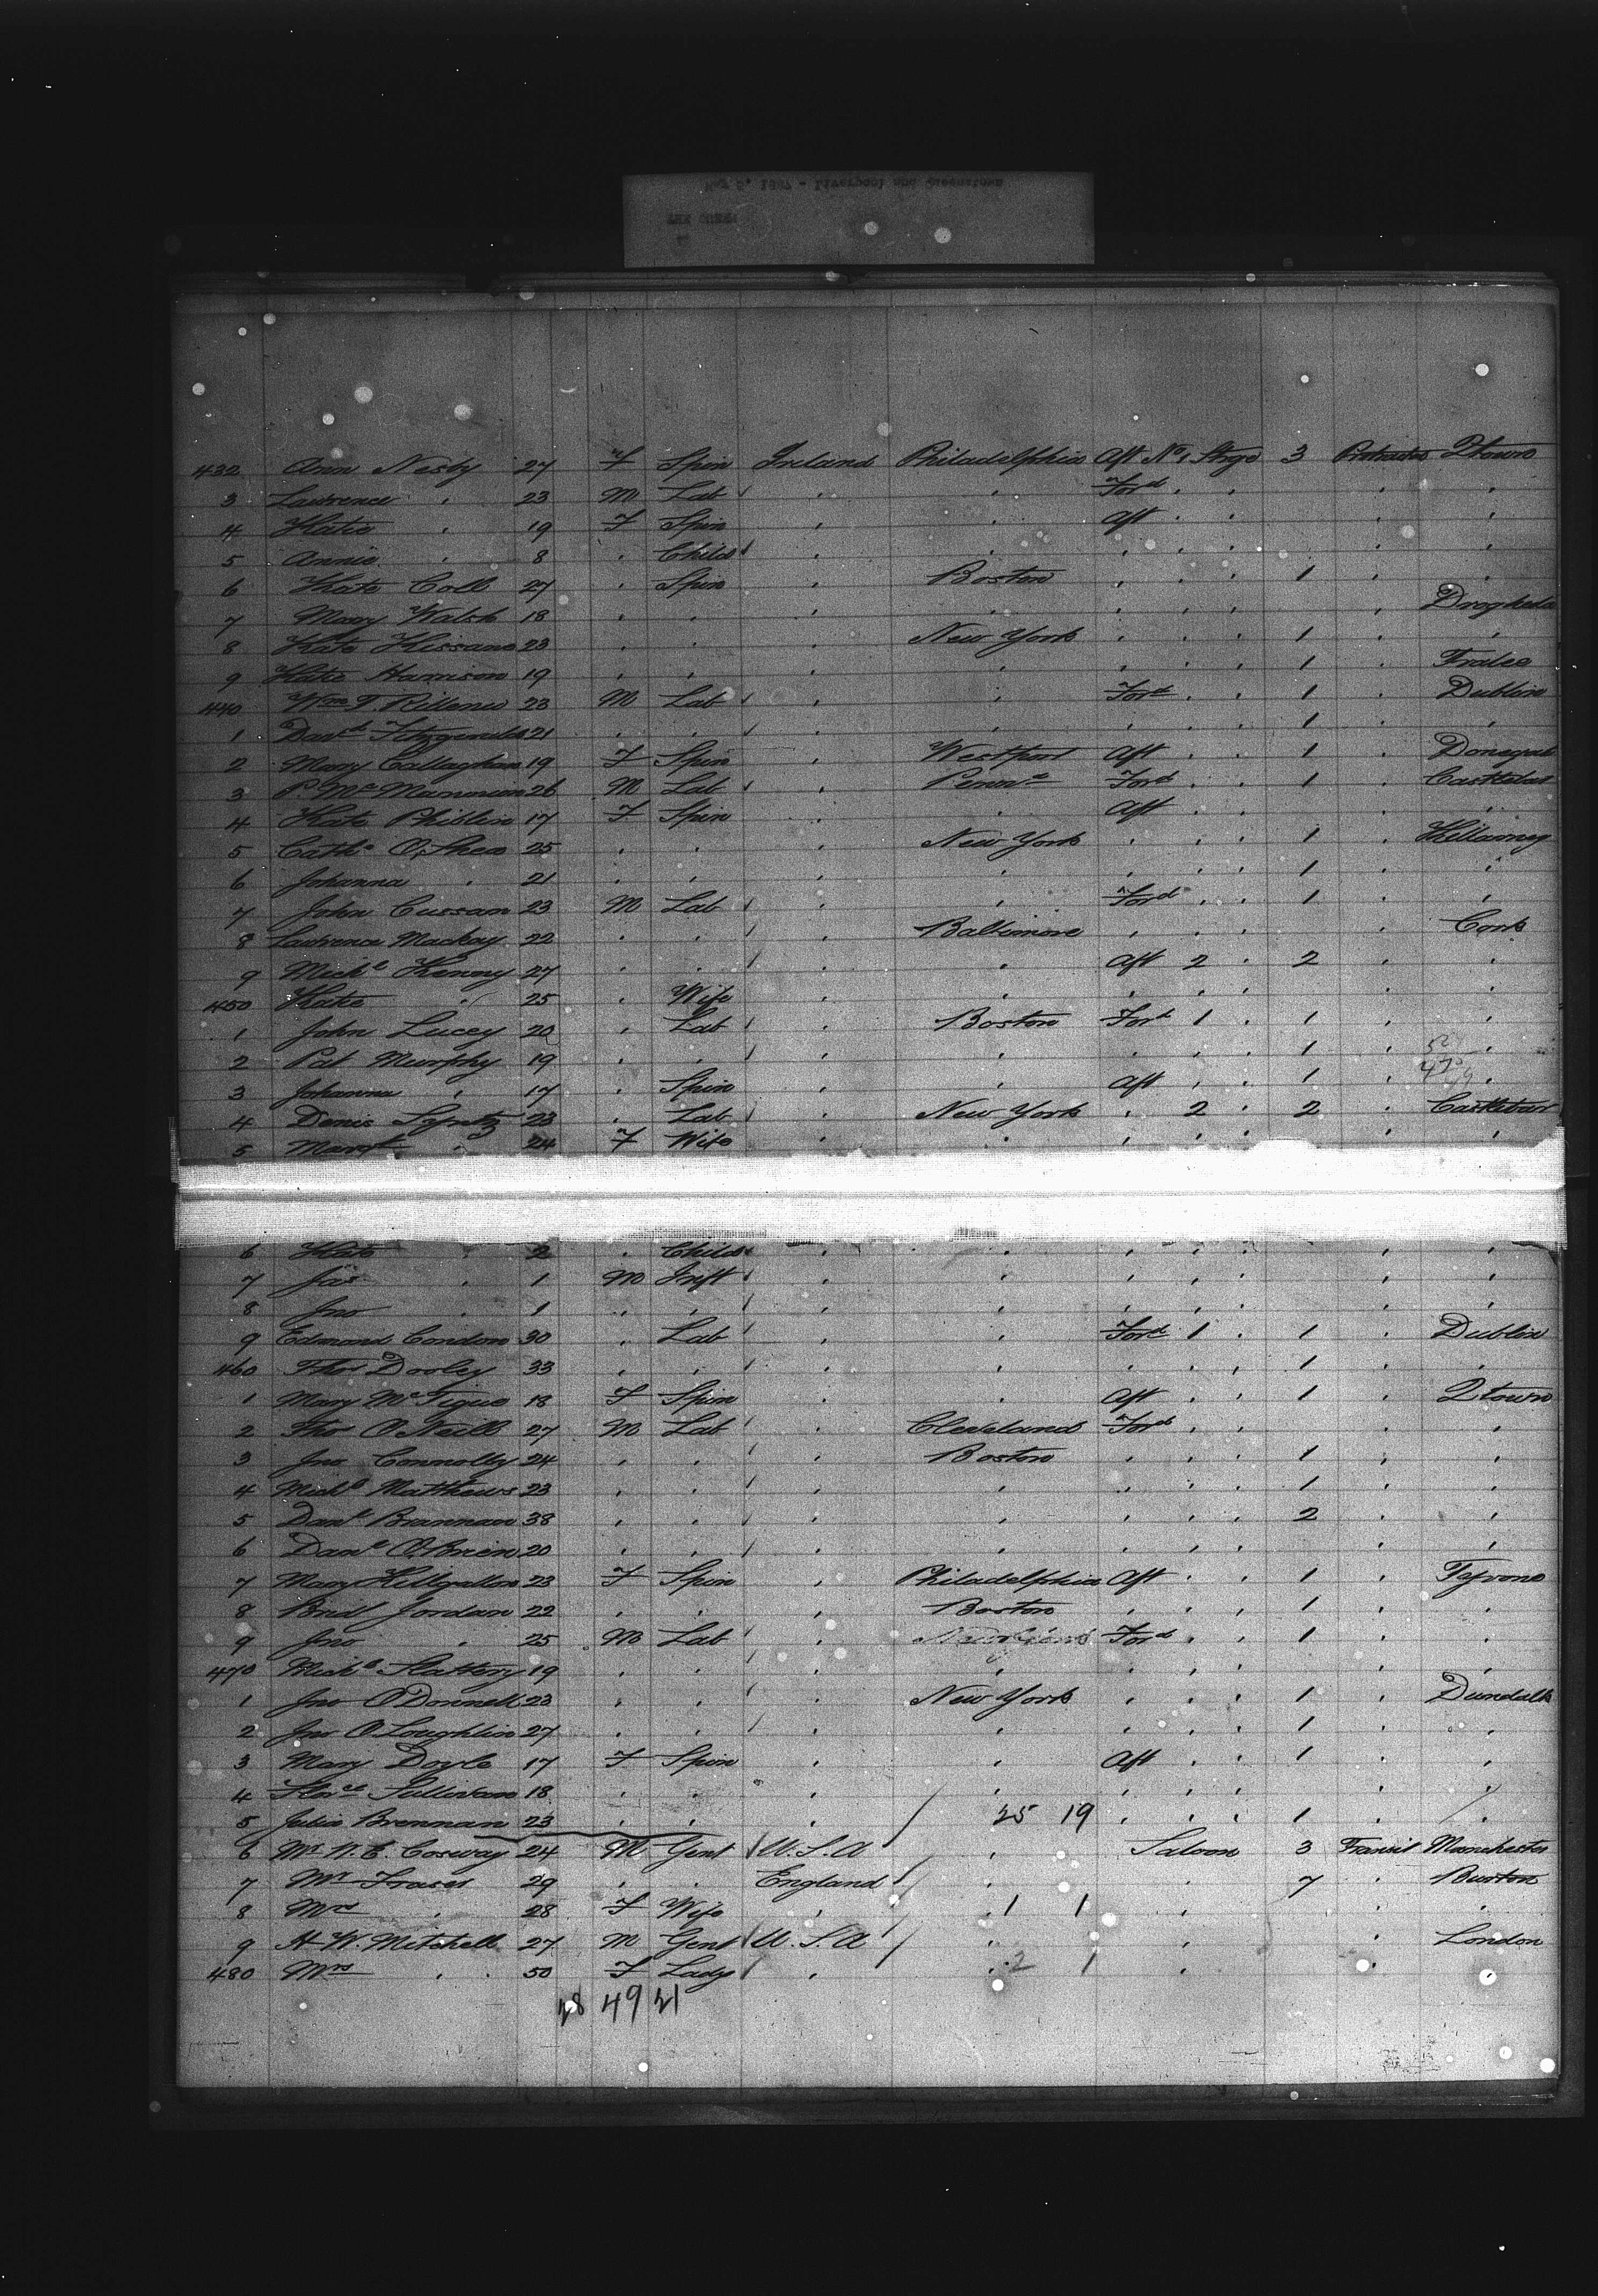 May 5, 1887 - Liverpool and Queenstown
THE QUEEN
432 Ann Nesby 27 F Spin Ireland Philadelphia Aft No 1 Strge 3 Protracted Qtown
3 Lawrence " 23 M Lab " " Ford " " " "
4 Katie " 19 F Spin " " Aft " " " "
5 Annie " 8 " Child " " " " " " "
6 Kate Coll 27 " Spin " Boston " " " 1 " "
7 Mary Walsh 18 " " " " " " " " Drogheda
8 Kate Kissane 23 " " " New York " " " 1 " "
9 Katie Harrison 19 " " " " " " " 1 " Tralee
440 Wm F 23 M Lab " " Ford " " 1 " Dublin
1 Davd Fitzgerald 21 " " " " " " " 1 " "
2 Mary Callaghan 19 F Spin " Westport Aft " " 1 " Donegal
3 P McManmon 26 M Lab " Penna Ford " " 1 " Castlebar
4 Kate Philbin 17 F Spin " " Aft " " " "
5 Cathe O'Shea 25 " " " New York " " " 1 " Killarney
6 Johanna " 21 " " " " " " " 1 " "
7 John Cussan 23 M Lab " " Ford " " 1 " "
8 Lawrence Mackay 22 " " " Baltimore " " " " Cork
9 Michl Kenny 27 " " " " Aft 2 " 2 " "
450 Kate " 25 " Wife " " " " " " "
1 John Lucey 20 " Lab " Boston Ford 1 " 1 " "
2 Pat Murphy 19 " " " " " " " 1 " "
3 Johanna " 17 " Spin " " Aft " " 1 " "
4 Denis 23 " Lab " New York " 2 " 2 " Castlebar
5 Margt " 24 F Wife " " " " " " "
6 Kate " 2 " Child " " " " " " "
7 Jas " 1 M Inft " " " " " " "
8 Jno " 1 " " " " " " " " "
9 Edmond Condon 30 " Lab " " Ford 1 " 1 " Dublin
460 Thos Dooley 33 " " " " " " " 1 " "
1 Mary McTigue 18 F Spin " " Aft " " 1 " Qtown
2 Thos O'Neill 27 M Lab " Cleveland Ford " " " "
3 Jno Connolly 24 " " " Boston " " " 1 " "
4 Michl Matthews 23 " " " " " " " 1 " "
5 Danl Brannan 38 " " " " " " " 2 " "
6 Danl O'Brien 20 " " " " " " " " "
7 Mary Killgallon 23 F Spin " Philadelphia Aft " " 1 " Tyrone
8 Brid Jordan 22 " " " Boston " " " 1 " "
9 Jno " 25 M Lab " Ford " " 1 " "
470 Michl Slattery 19 " " " " " " " " "
1 Jno O'Donnell 23 " " " New York " " " 1 " Dundalk
2 Jno O'Loughlin 27 " " " " " " " 1 " "
3 Mary Doyle 17 F Spin " " Aft " " 1 " "
4 Florce Sullivan 18 " " " " " " " " "
5 Julia Brennan 23 " " " 25 19 " " " 1 " "
6 Mr W. E. Cosway 24 M Gent U.S.A " Saloon 3 Transit Manchester
7 Mr Fraser 29 " " England " " 7 " Burton
8 Mrs " 28 F Wife " 1 1 " "
9 H W. Mitchell 27 M Gent U.S.A " " " London
480 Mrs " 50 F Lady " 2 1 " " "
28 49 21